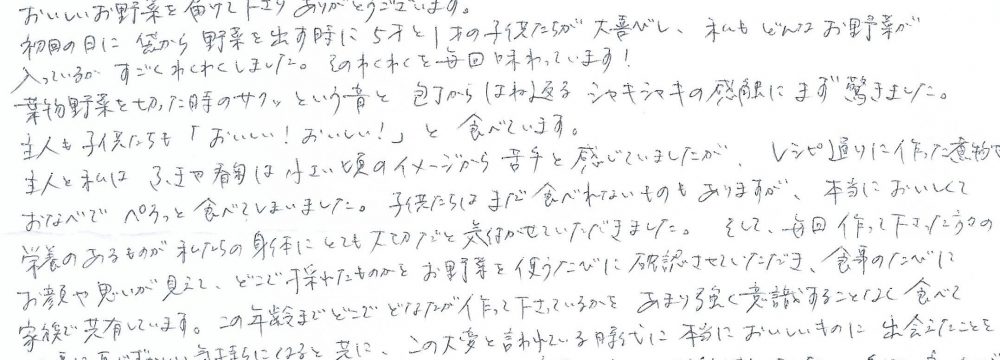 おいしいお野菜を届けて下さりありがとうございます。
初回の日に袋から野菜を出す時に5才と1才の子供たちが大喜びし、私もどんなお野菜が
入っているか すごくわくわくしました。そのわくわくを毎回味わっています!
葉物野菜を切った時のサクッという音と 包丁からはね返る シャキシャキの感触にまず驚きました。
主人も子供たちも「おいしい!おいしい!」と 食べています。
主人と私は ふきや春菊は小さい頃のイメージから苦手と感じていましたが、レシピ通りに作った煮物や
おなべで ぺろっと食べてしまいました。子供たちはまだ食べれないものもありますが、本当においしくて
栄養のあるものが私たちの身体にとても大切だと気付かせていただきました。そして、毎回作って下さった方々の
お顔や思いが見えて、どこで採れたものかを お野菜を使うたびに確認させていただき、食事のたびに
家族で共有しています。この年齢までどこでどなたが作って下さっているかを あまり強く意識することなく食べて
気持ちになると共に、この大変と言われている時代に本当においしいものに出会えたことを